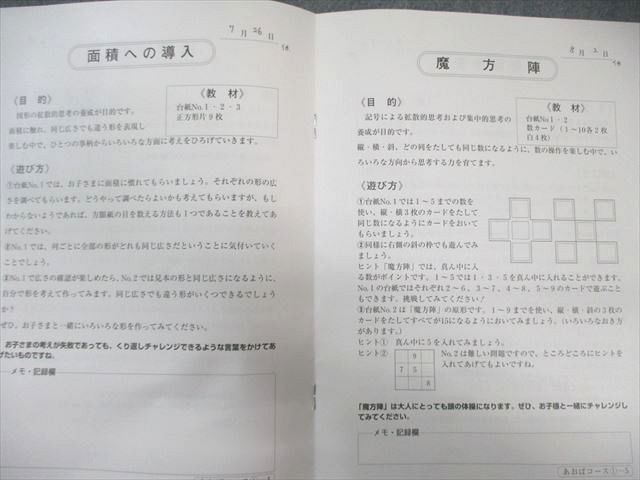 7月26日
面積への導入
《目 的》
図形の拡散的思考の養成が目的です。
面積に触れ、同じ広さでも違う形を表現し
楽しむ中で、ひとつの事柄からいろいろな方面に考えをひろげていきます。
《教 材》
台紙No.1・2・3
正方形片9枚
《遊び方》
①台紙No.1では、お子さまに面積に慣れてもらいましょう。それぞれの形の広
さを調べてもらいます。どうやって調べたらよいかも考えてもらいますが、もし
わからないようであれば、方眼紙の目を数える方法も1つであることを教えてあ
げてください。
②No.1では、列ごとに全部の形がどれも同じ広さだということに気付いていく
ことでしょう。
③No.1で広さの確認が楽しめたら、No.2では見本の形と同じ広さになるように、
自分で形を考えて作ってみます。同じ広さでも違う形がいくつできるでしょう
か？
ぜひ、お子さまと一緒にいろいろな形を作ってみてください。
お子さまの考えが失敗であっても、くり返しチャレンジできるような言葉をかけてあ
げたいものですね。
メモ・記録欄
8月2日
魔 方 陣
《目 的》
記号による拡散的思考および集中的思考の
養成が目的です。
縦・横・斜、どの列をたしても同じ数になるように、数の操作を楽しむ中で、い
ろいろな方向から思考する力を育てます。
《教 材》
台紙No.1・2
数カード（1～10各2枚
白4枚）
《遊び方》
①台紙No.1では1～5までの数を
使い、縦・横3枚のカードをたして
同じ数になるようにカードをおいて
もらいましょう。
②同様に右側の斜の枠でも遊んでみ
ましょう。
ヒント「魔方陣」では、真ん中に入
る数がポイントです。1～5では1・3・5を真ん中に入れることができます。
No.1の台紙ではそれぞれ2～6、3～7、4～8、5～9のカードで遊ぶことも
できます。挑戦してみてください！
③台紙No.2は「魔方陣」の原形です。1～9までを使い、縦・横・斜の3枚の
カードをたしてすべてが15になるようにおいてみましょう。（いろいろなおき方
があります。）
ヒント① 真ん中に5を入れてみましょう。
ヒント②
9
7 5
8
No.2は難しい問題ですので、ところどころにヒントを
入れてあげてもよいですね。
「魔方陣」は大人にとっても頭の体操になります。ぜひ、お子様と一緒にチャレンジし
てみてください。
メモ・記録欄
あおばコース①－5